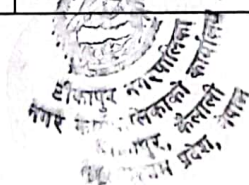 टीकापुर नगरपालिका
नगर कार्यपालिकाको कार्यालय
टीकापुर, कैलाली
प्रदेश, नेपाल